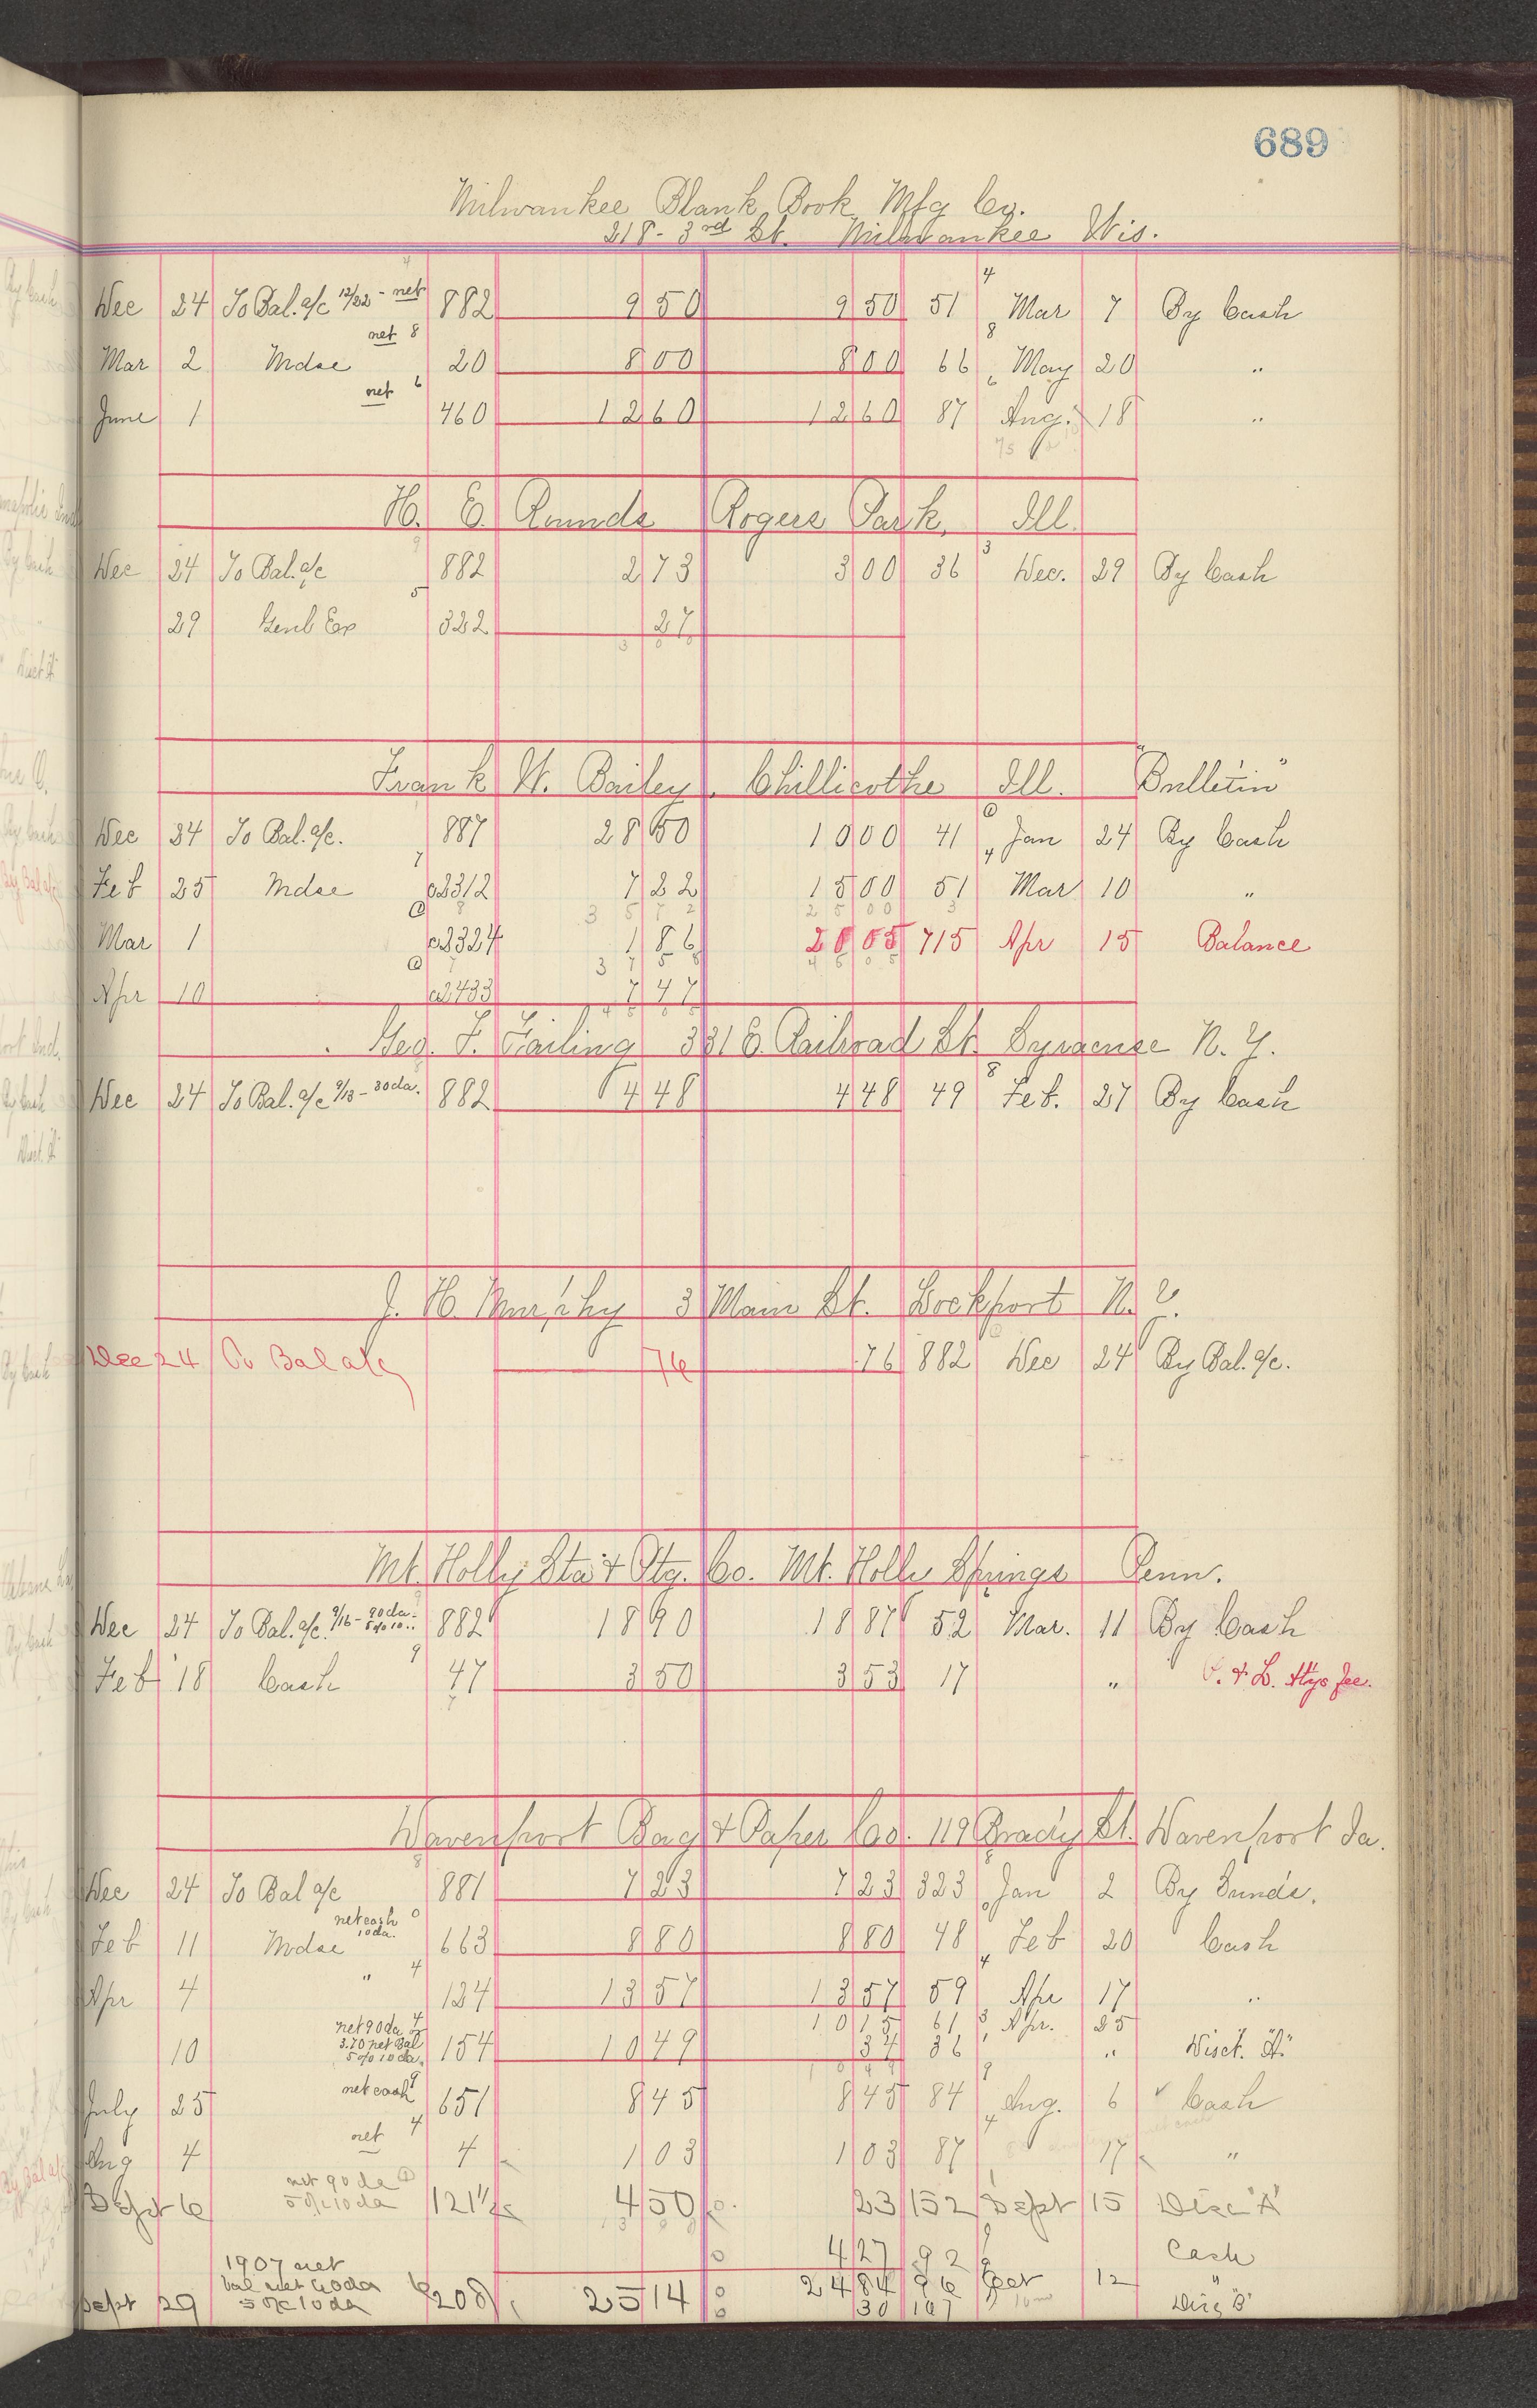 689
Milwaukee Blank Book Mfg Co.
218 - 3rd St. Milwaukee Wis.
Dec 24 To Bal. a/c 12/22 - net 882 9 50 9 50 51 Mar 7 By Cash
Mar 2 Mdse net 8 20 8 00 8 00 66 May 20 "
June 1 net 6 460 12 60 12 60 87 Aug. 18 "
H. E. Rounds Rogers Park, Ill.
Dec 24 To Bal. a/c 882 2 73 3 00 36 Dec. 29 By Cash
29 Genl Ex 322 27
Frank W. Bailey, Chillicothe Ill. "Bulletin"
Dec 24 To Bal. a/c. 887 28 50 10 00 41 Jan 24 By Cash
Feb 25 Mdse a2312 7 22 15 00 51 Mar 10 "
Mar 1 a2324 1 86 20 05 715 Apr 15 Balance
Apr 10 a2433 7 47
Geo. F. Failing 331 E. Railroad St. Syracuse N. Y.
Dec 24 To Bal. a/c 9/13 - 30 da. 882 4 48 4 48 49 Feb. 27 By Cash
J. H. Murphy 3 Main St. Lockport N. Y.
Dec 24 To Bal a/c 76 76 882 Dec 24 By Bal. a/c.
Mt. Holly Sta & Ptg. Co. Mt. Holly Springs Penn.
Dec 24 To Bal. a/c. 9/16 - 90 da. 5% 10 .. 882 18 90 18 87 52 Mar. 11 By Cash
Feb 18 Cash 47 3 50 3 53 17 " P. & L. Attys fee.
Davenport Bag & Paper Co. 119 Brady St. Davenport Ia.
Dec 24 To Bal a/c 881 7 23 7 23 323 Jan 2 By Sunds.
Feb 11 Mdse net cash 10 da. 663 8 80 8 80 48 Feb 20 Cash
Apr 4 " 124 13 57 13 57 59 Apr 17 "
10 15 61 Apr. 25
10 net 90 da 3.70 net Bal 5% 10 da. 154 10 49 34 36 " Disct. "A"
July 25 net cash 651 8 45 8 45 84 Aug. 6 Cash
Aug 4 net 4 1 03 1 03 87 17 "
Sept 6 net 90 da 5% 10 da 121 4 50 23 152 Sept 15 Disc "A"
4 27 92 Cash
Sept 29 1907 net bal net 60 da 5% 10 da 208 25 14 24 84 96 Oct 12 "
30 167 Disc "B"